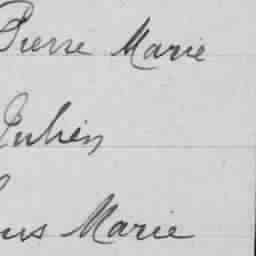 Pierre Marie
Julien
Marie